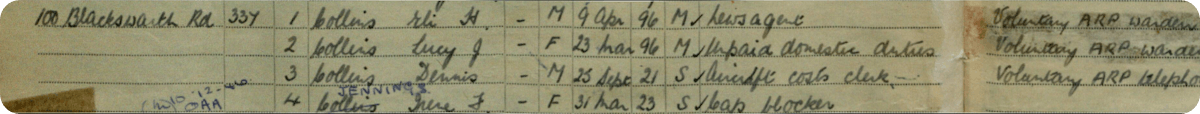 100 Blackswarth Rd 337 1 Collins Eli H. - M 9 Apr 96 M Newsagent Voluntary ARP Warden
2 Collins Lucy J - F 23 Mar 96 M Unpaid domestic duties Voluntary ARP Warden
3 Collins Dennis - M 25 Sept 21 S Aircraft costs clerk - Voluntary ARP telepho
JENNINGS
4 Collins Irene F. - F 31 Mar 23 S Cap blocker